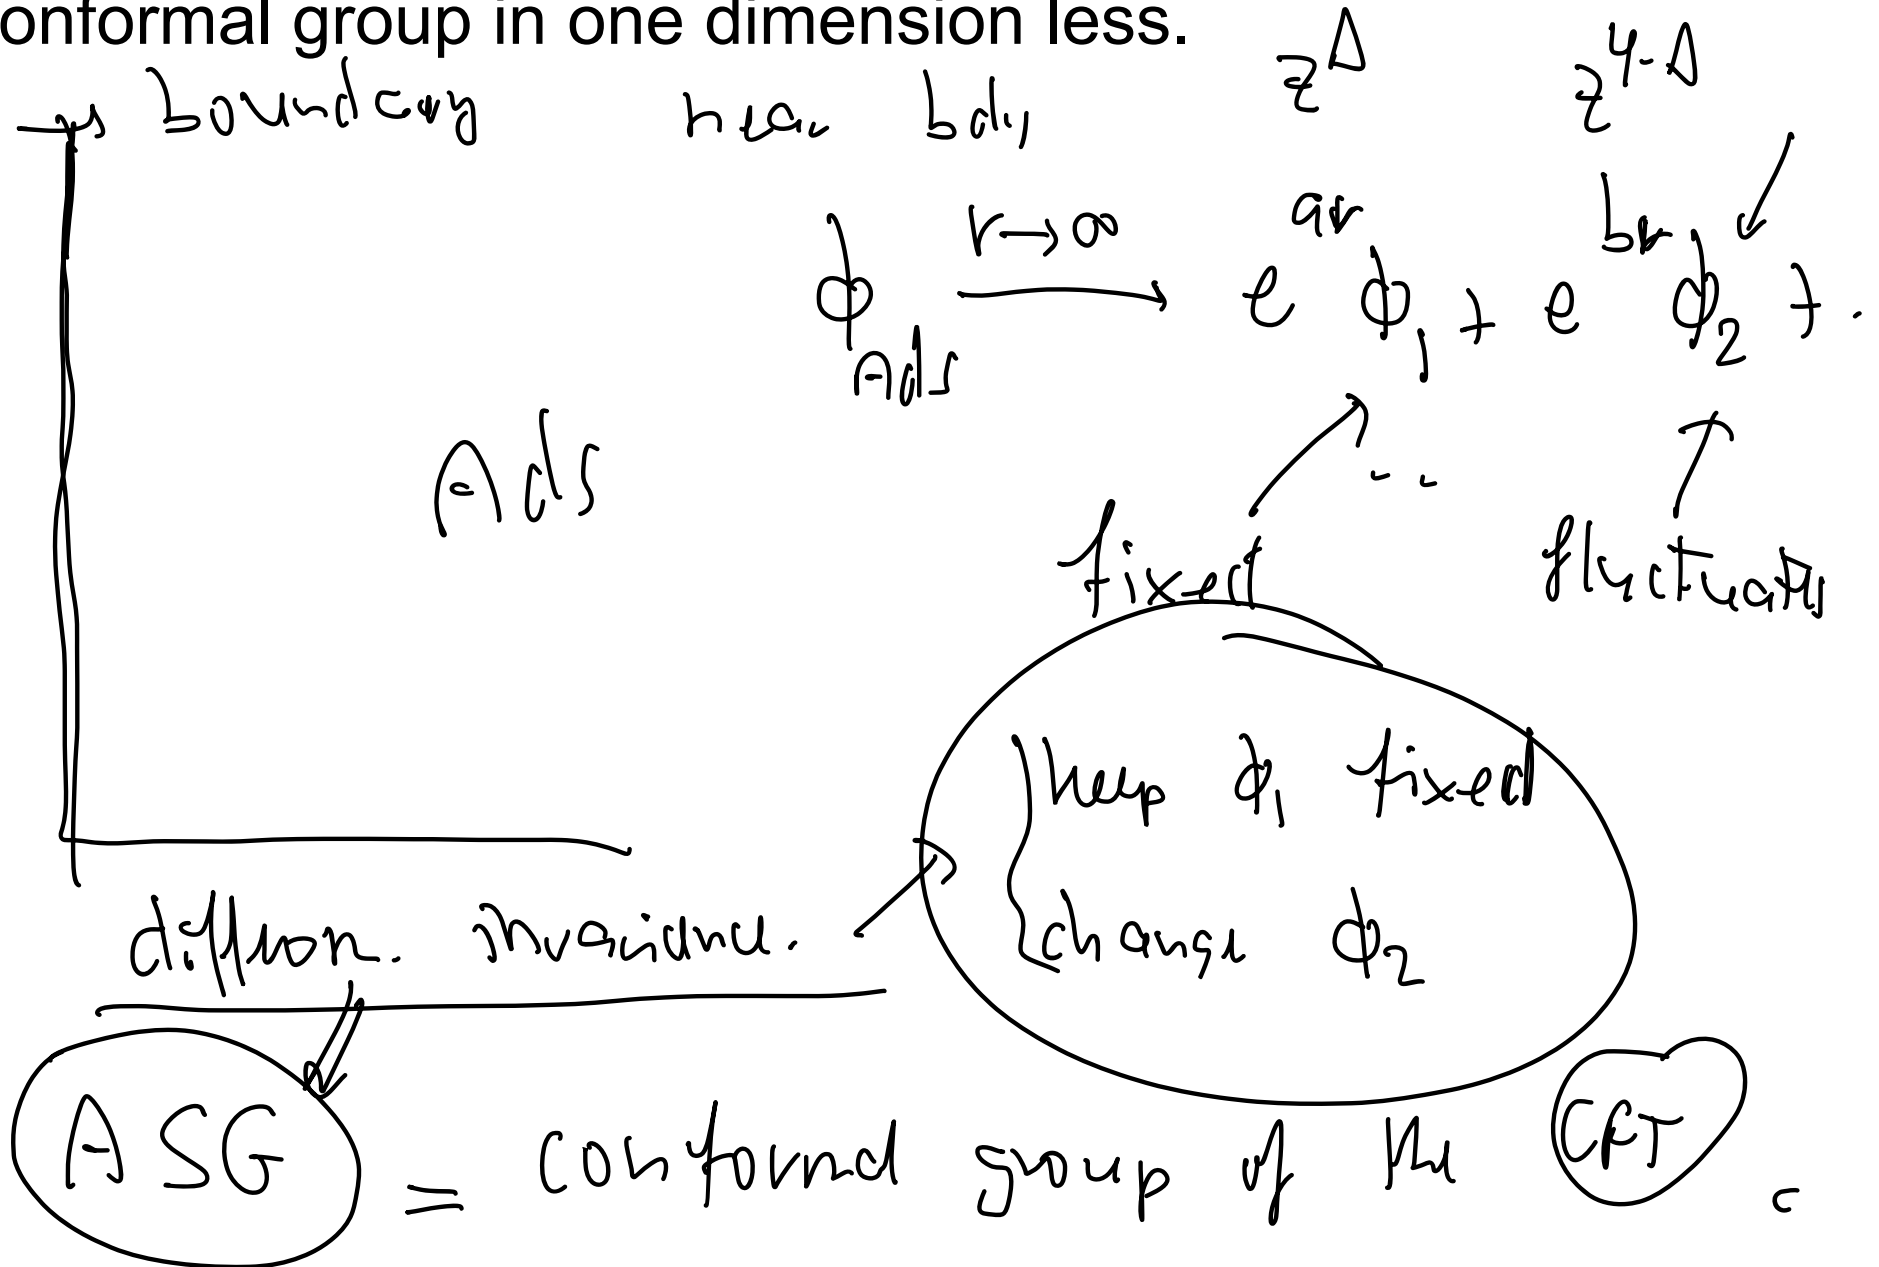 onformal group in one dimension less.
→ boundary near bdy z^Δ z^{4-Δ}
ϕ_{AdS} r→∞ e^{ar} ϕ_1 + e^{br} ϕ_2 + .
AdS
..
fixed fluctuates
keep ϕ_1 fixed
diffeom. invariance. change ϕ_2
ASG = conformal group of the CFT